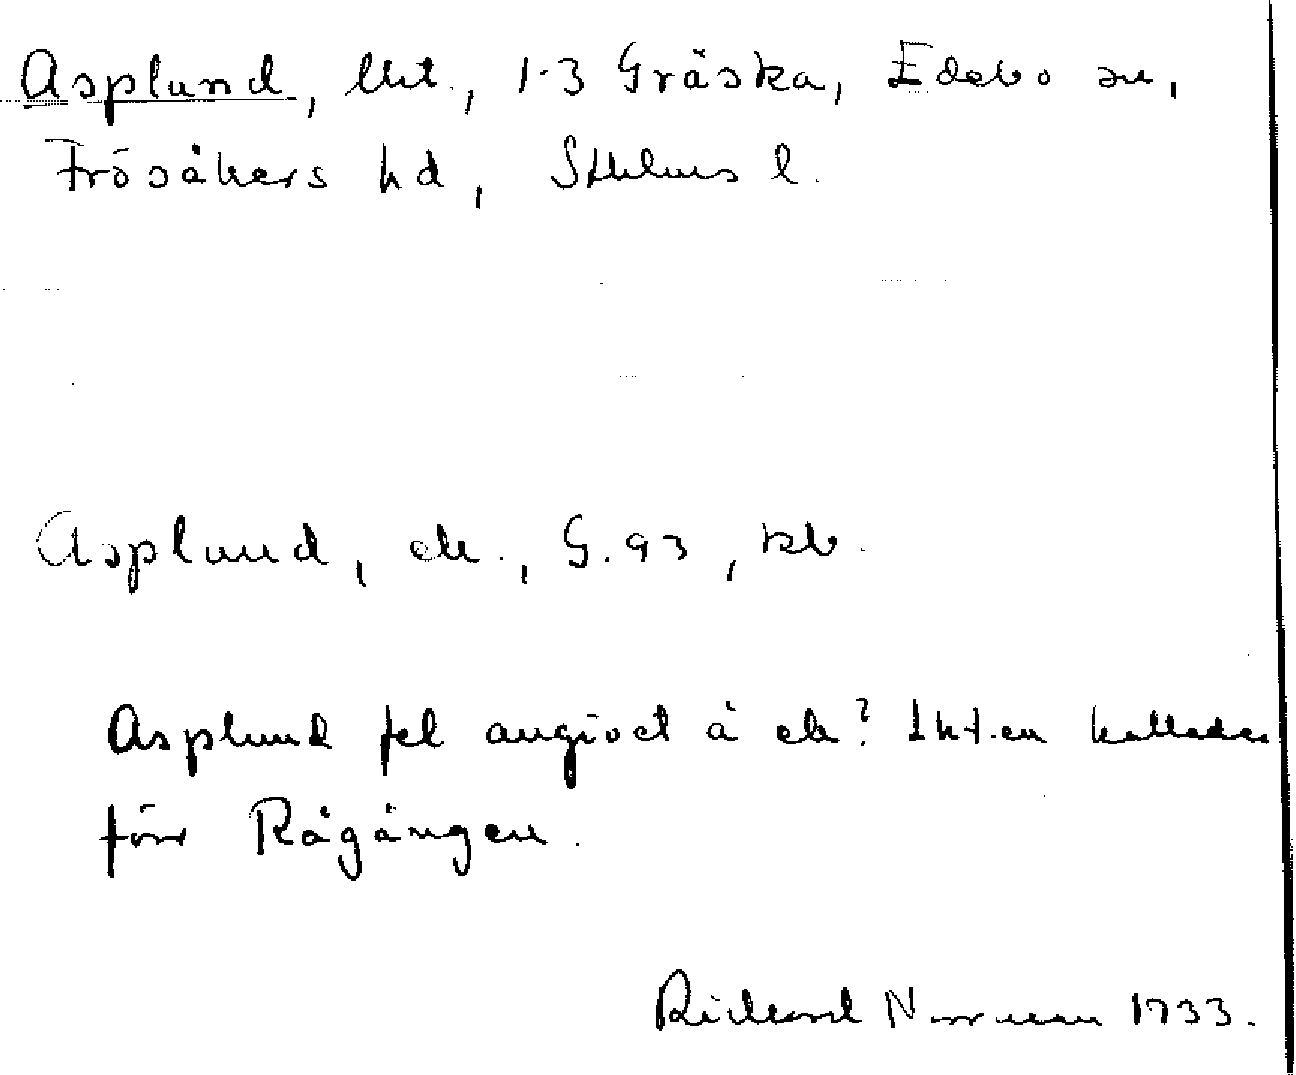 Asplund, lht., 1-3 Gräska, Edebo sn,
Frösåkers hd, Sthlms l.
Asplund, ek., G.93, kb.
Asplund fel angivet å ek? Lht.en kallades
förr Rågången.
Rickard Norrman 1933.